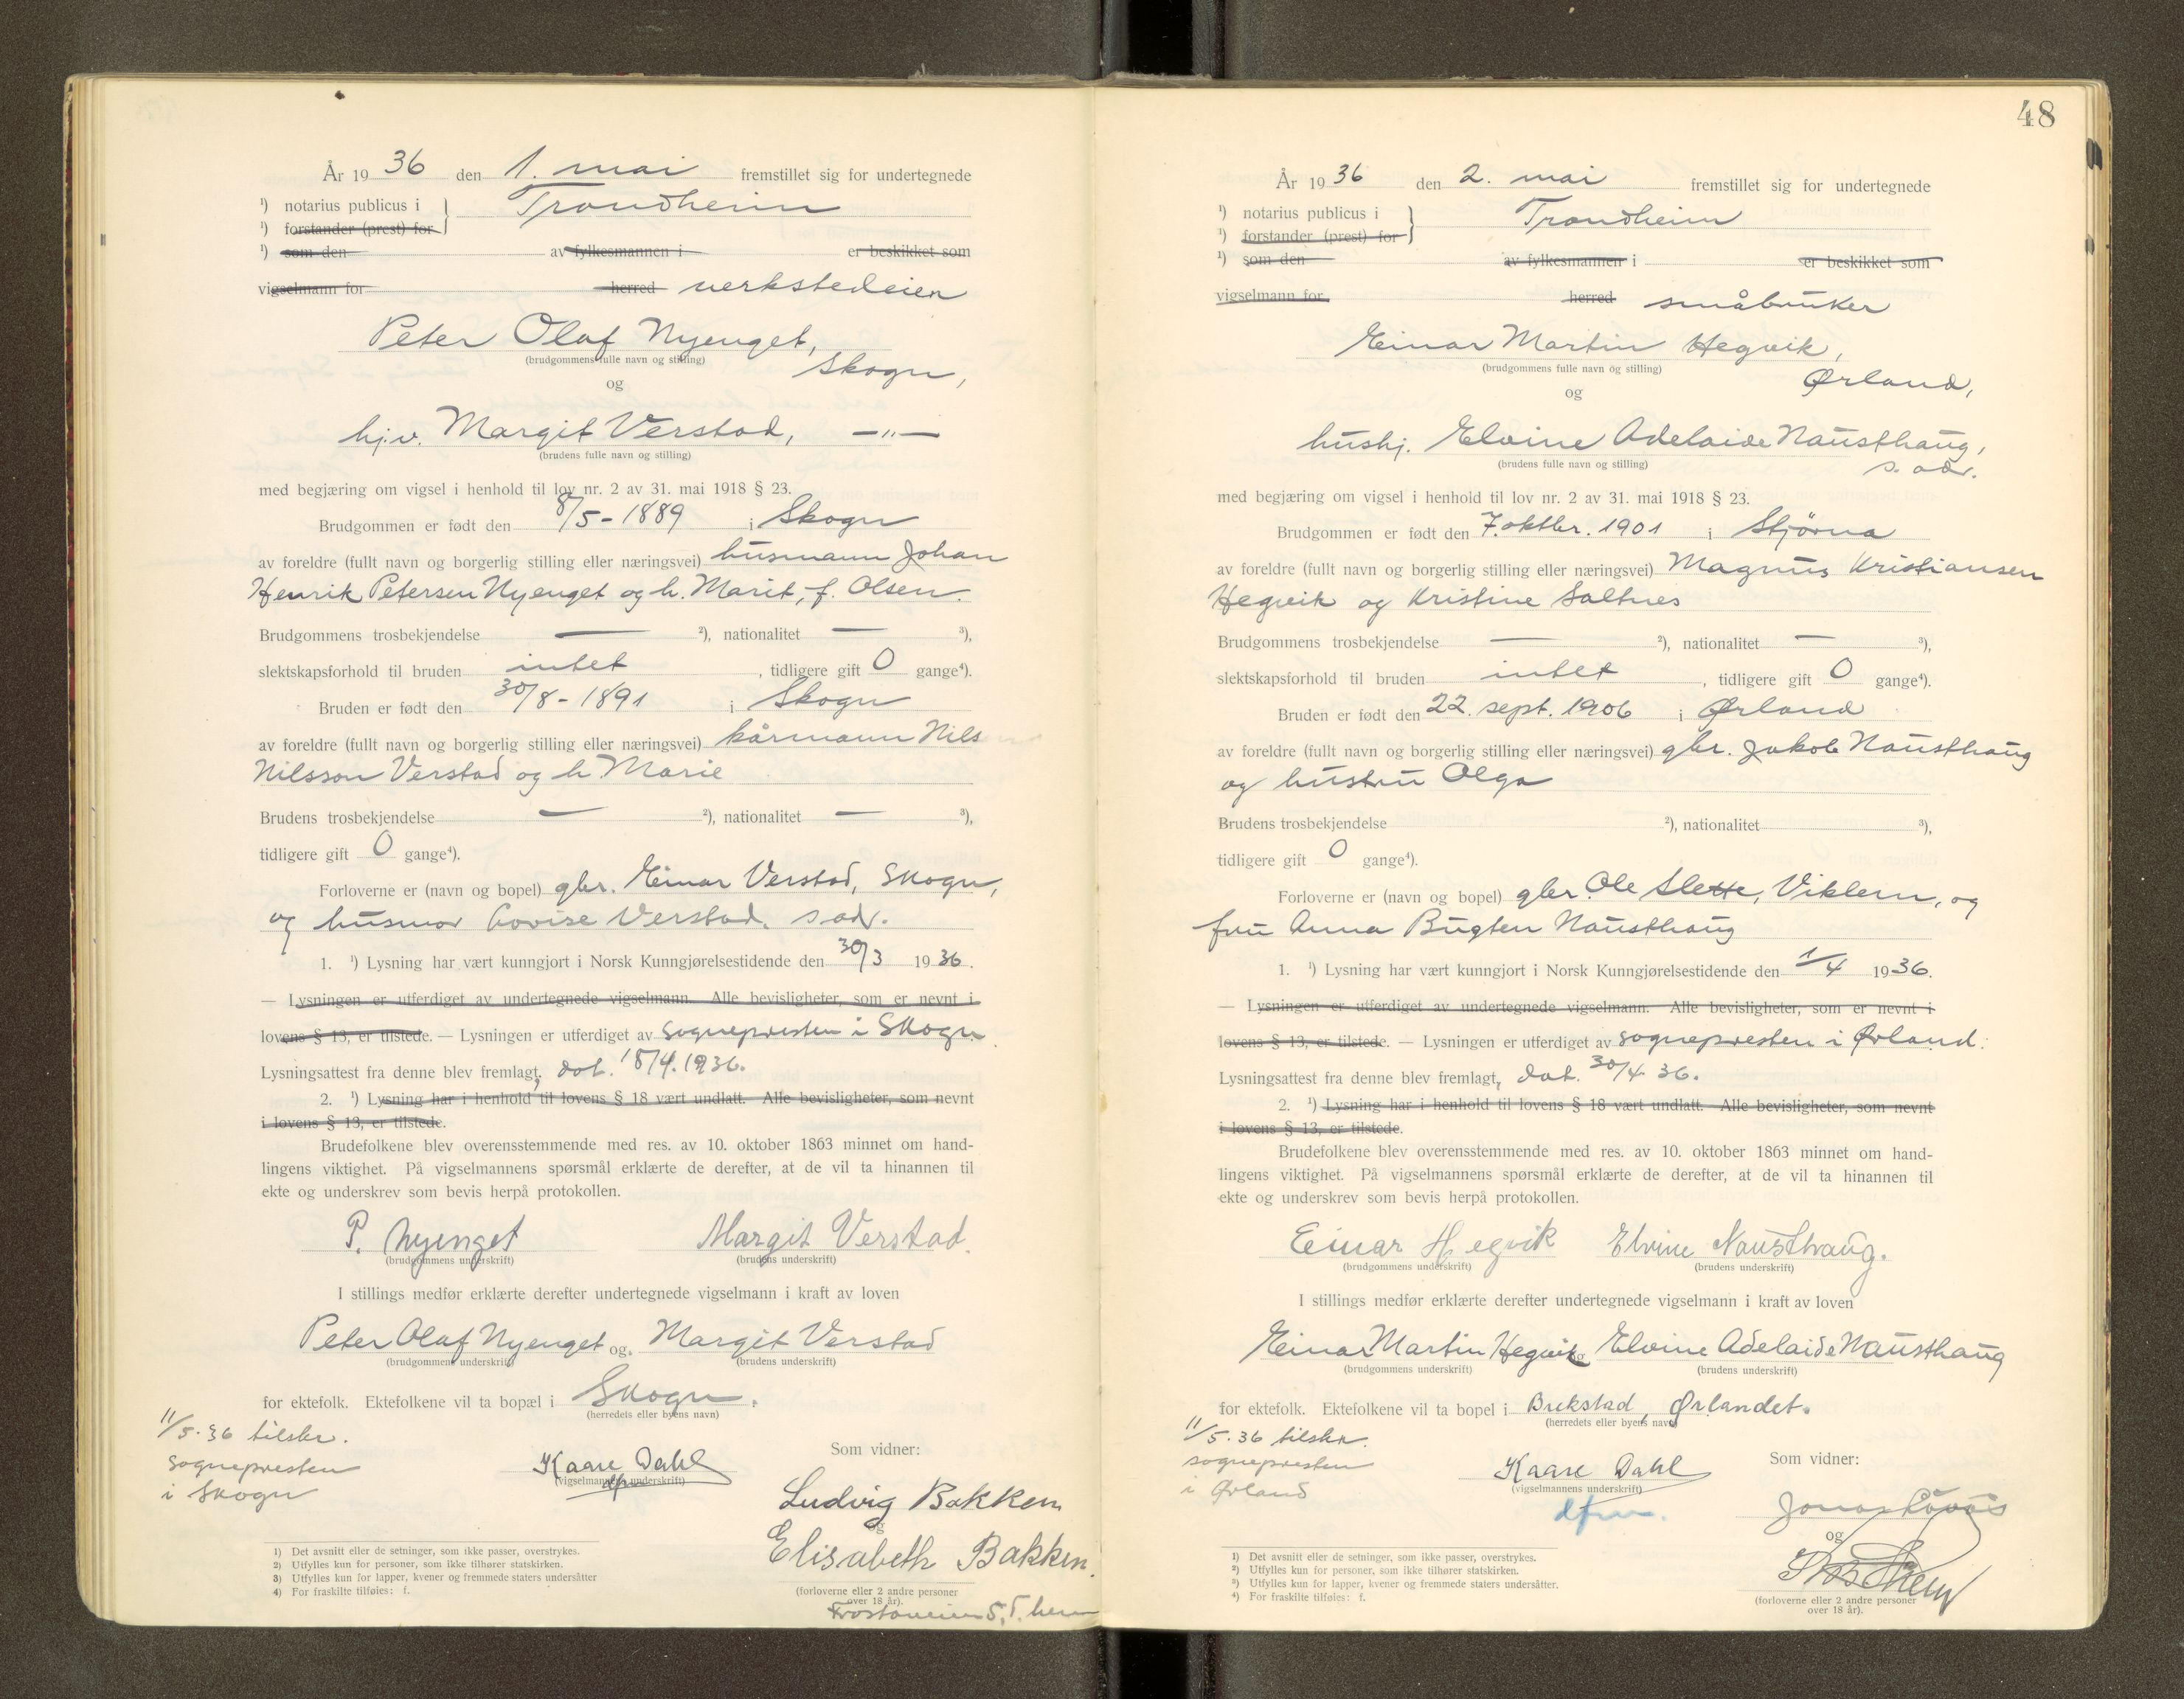 År 19 36 den 1. mai fremstillet sig for undertegnede
¹) notarius publicus i } Trondheim
¹) forstander (prest) for
¹) som den av fylkesmannen i er beskikket som
vigselmann for herred verkstedeier
Peter Olaf Nyenget,
(brudgommens fulle navn og stilling)
Skogn,
og
hj.v. Margit Verstad, —"—
(brudens fulle navn og stilling)
med begjæring om vigsel i henhold til lov nr. 2 av 31. mai 1918 § 23.
Brudgommen er født den 8/5-1889 i Skogn
av foreldre (fullt navn og borgerlig stilling eller næringsvei) husmann Johan
Henrik Petersen Nyenget og h. Marit, f. Olsen.
Brudgommens trosbekjendelse — ²), nationalitet — ³),
slektskapsforhold til bruden intet, tidligere gift 0 gange⁴).
Bruden er født den 30/8-1891 i Skogn
av foreldre (fullt navn og borgerlig stilling eller næringsvei) kårmann Nils
Nilsson Verstad og h Marie
Brudens trosbekjendelse — ²), nationalitet — ³),
tidligere gift 0 gange⁴).
Forloverne er (navn og bopel) gbr. Einar Verstad, Skogn,
og husmor Lovise Verstad, s adr.
1. ¹) Lysning har vært kunngjort i Norsk Kunngjørelsestidende den 30/3 19 36.
— Lysningen er utferdiget av undertegnede vigselmann. Alle bevisligheter, som er nevnt i
lovens § 13, er tilstede. — Lysningen er utferdiget av sognepresten i Skogn.
Lysningsattest fra denne blev fremlagt, dat. 18/4.1936.
2. ¹) Lysning har i henhold til lovens § 18 vært undlatt. Alle bevisligheter, som nevnt
i lovens § 13, er tilstede.
Brudefolkene blev overensstemmende med res. av 10. oktober 1863 minnet om hand-
lingens viktighet. På vigselmannens spørsmål erklærte de derefter, at de vil ta hinannen til
ekte og underskrev som bevis herpå protokollen.
P. Nyenget Margit Verstad.
(brudgommens underskrift) (brudens underskrift)
I stillings medfør erklærte derefter undertegnede vigselmann i kraft av loven
Peter Olaf Nyenget og Margit Verstad
(brudgommens underskrift) (brudens underskrift)
for ektefolk. Ektefolkene vil ta bopæl i Skogn.
(herredets eller byens navn)
11/5.36 tilskr.
sognepresten
i Skogn
Kaare Dahl
(vigselmannens underskrift)
dfm
Som vidner:
Ludvig Bakken
og
Elisabeth Bakken.
(forloverne eller 2 andre personer
over 18 år).
Frostaveien 5, T.heim
1) Det avsnitt eller de setninger, som ikke passer, overstrykes.
2) Utfylles kun for personer, som ikke tilhører statskirken.
3) Utfylles kun for lapper, kvener og fremmede staters undersåtter
4) For fraskilte tilføies: f.
48
År 19 36 den 2. mai fremstillet sig for undertegnede
¹) notarius publicus i } Trondheim
¹) forstander (prest) for
¹) som den av fylkesmannen i er beskikket som
vigselmann for herred småbruker
Einar Martin Hegvik,
(brudgommens fulle navn og stilling)
Ørland,
og
hushj. Elvine Adelaide Nausthaug,
(brudens fulle navn og stilling)
s. adr.
med begjæring om vigsel i henhold til lov nr. 2 av 31. mai 1918 § 23.
Brudgommen er født den 7. oktbr. 1901 i Stjørna
av foreldre (fullt navn og borgerlig stilling eller næringsvei) Magnus Kristiansen
Hegvik og Kristine Saltnes
Brudgommens trosbekjendelse — ²), nationalitet — ³),
slektskapsforhold til bruden intet, tidligere gift 0 gange⁴).
Bruden er født den 22. sept. 1906 i Ørland
av foreldre (fullt navn og borgerlig stilling eller næringsvei) gbr. Jakob Nausthaug
og hustru Olga
Brudens trosbekjendelse ²), nationalitet ³),
tidligere gift 0 gange⁴).
Forloverne er (navn og bopel) gbr. Ole Slette, Viklem, og
fru Anna Bugten Nausthaug
1. ¹) Lysning har vært kunngjort i Norsk Kunngjørelsestidende den 1/4 1936.
— Lysningen er utferdiget av undertegnede vigselmann. Alle bevisligheter, som er nevnt i
lovens § 13, er tilstede. — Lysningen er utferdiget av sognepresten i Ørland.
Lysningsattest fra denne blev fremlagt, dat. 30/4 36.
2. ¹) Lysning har i henhold til lovens § 18 vært undlatt. Alle bevisligheter, som nevnt
i lovens § 13, er tilstede.
Brudefolkene blev overensstemmende med res. av 10. oktober 1863 minnet om hand-
lingens viktighet. På vigselmannens spørsmål erklærte de derefter, at de vil ta hinannen til
ekte og underskrev som bevis herpå protokollen.
Einar Hegvik Elvine Nausthaug.
(brudgommens underskrift) (brudens underskrift)
I stillings medfør erklærte derefter undertegnede vigselmann i kraft av loven
Einar Martin Hegvik og Elvine Adelaide Nausthaug
(brudgommens underskrift) (brudens underskrift)
for ektefolk. Ektefolkene vil ta bopel i Brekstad, Ørlandet.
(herredets eller byens navn)
11/5.36 tilskr.
sognepresten
i Ørland
Kaare Dahl
(vigselmannens underskrift)
dfm.
Som vidner:
Jonas
og
(forloverne eller 2 andre personer
over 18 år).
1) Det avsnitt eller de setninger, som ikke passer, overstrykes.
2) Utfylles kun for personer, som ikke tilhører statskirken.
3) Utfylles kun for lapper, kvener og fremmede staters undersåtter.
4) For fraskilte tilføies: f.